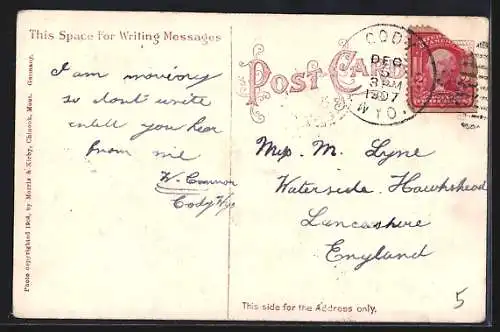 This Space For Writing Messages
I am moving
so dont write
untill you hear
from me
W. Connor
Cody Wyo
Photo copyrighted by Morris & Kirby, Chinook, Mont. Germany.
POST CARD
CODY
DEC
5
3 PM
1907
WYO.
Miss. M. Lyne
Waterside. Hawkshead
Lancashire
England
This side for the Address only.
5